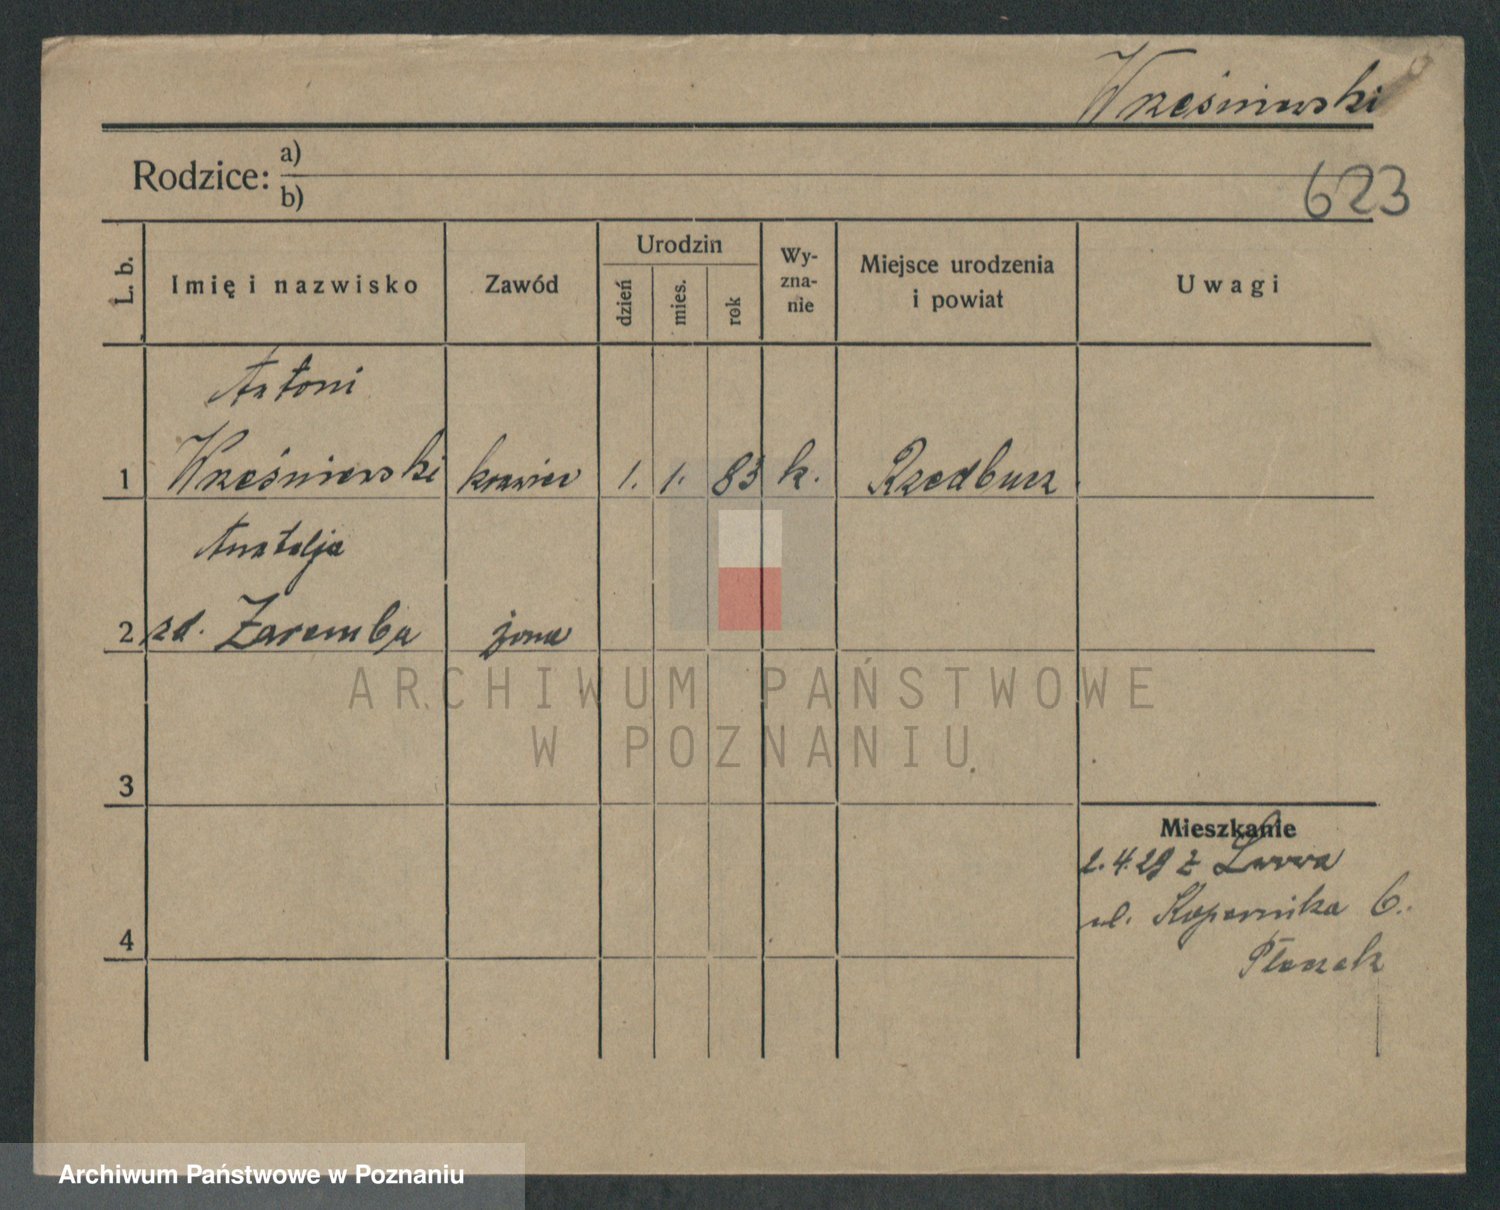 Wrześniewski
Rodzice: a)
b)
623
L. b. Imię i nazwisko Zawód Urodzin dzień mies. rok Wy-zna-nie Miejsce urodzenia i powiat Uwagi
Antoni
1 Wrześniewski krawiec 1. 1. 83 k.
2 zd. Zaremba żona
ARCHIWUM PAŃSTWOWE
W POZNANIU
3
Mieszkanie
2.4.29 z
ul. Kopernika 6.
4
Archiwum Państwowe w Poznaniu